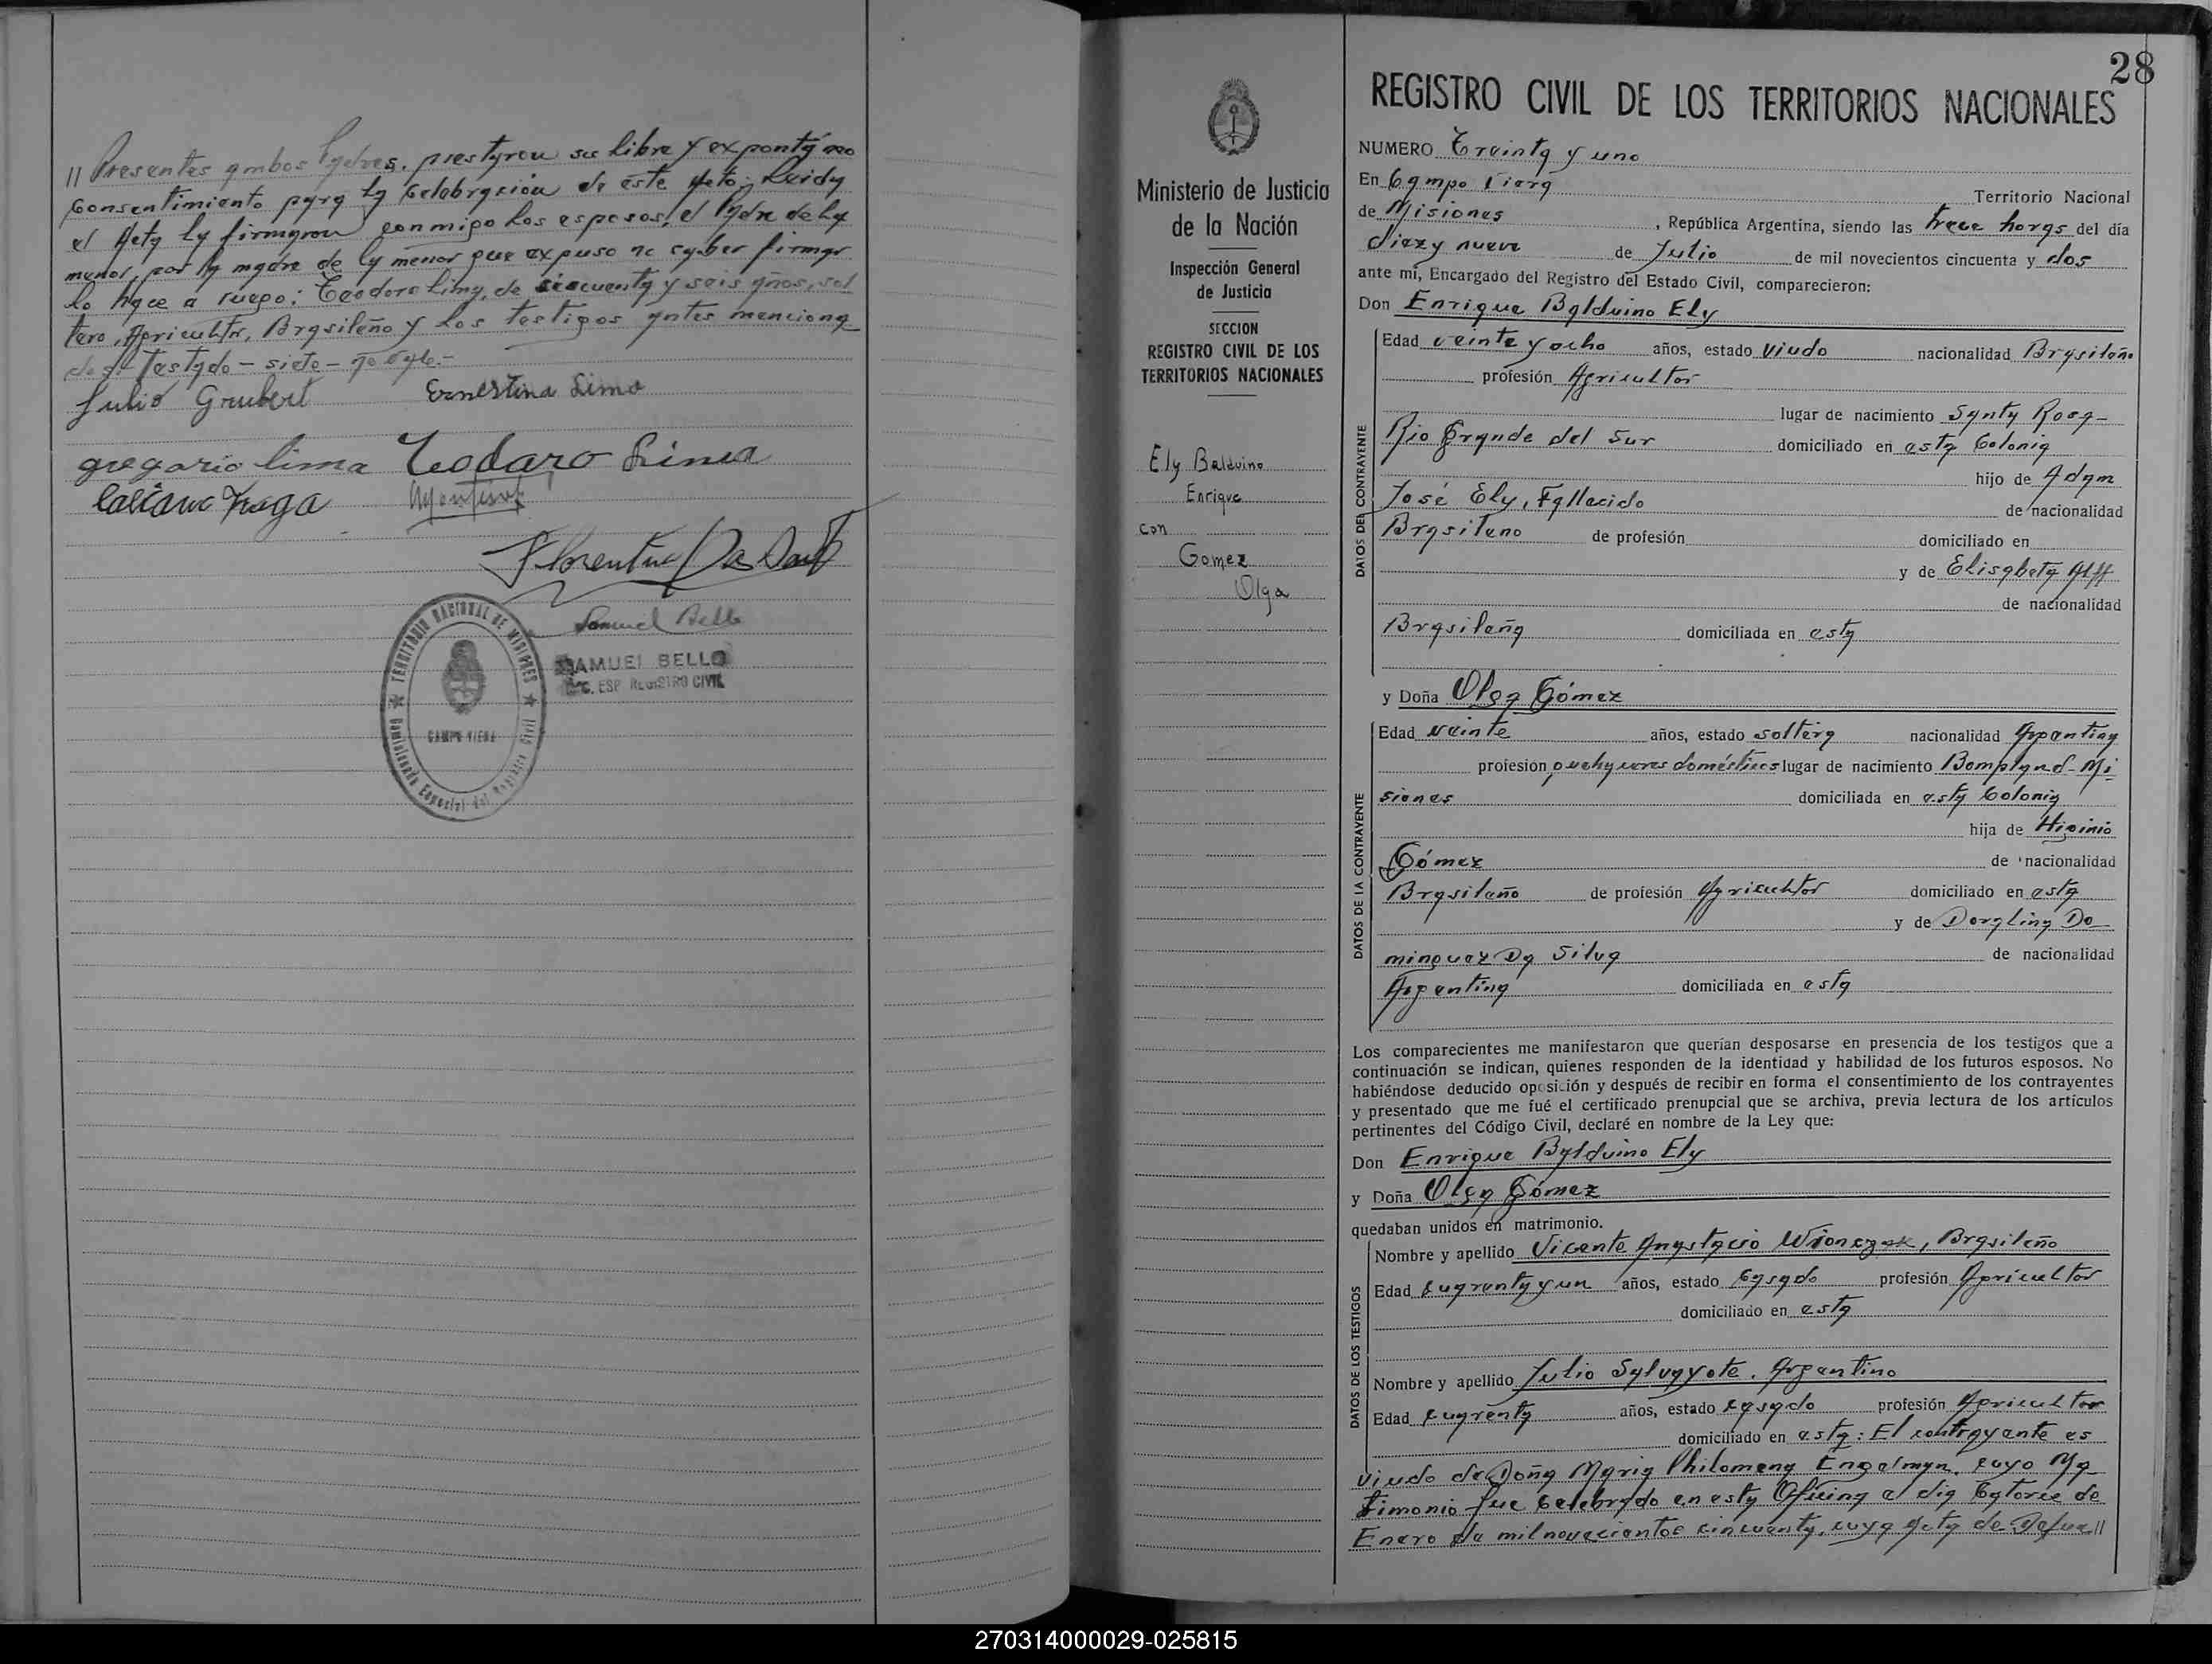 // Presentes ambos Padres, prestaron su libre y expontáneo
consentimiento para la celebración de este Acto; Leida
el Acta la firmaron conmigo los esposos, el Padre de la
menor, por la madre de la menor que expuso no saber firmar
lo hace a ruego: Teodoro Lima, de cincuenta y seis años, sol
tero, Agricultor, Brasileño y los testigos antes menciona
dos. Testado - siete - no vale.-
Julio Grubert Ernestina Lima
gregorio lima Teodaro Lima
Fraga
Florentin
Samuel Bello
SAMUEL BELLO
ESP REGISTRO CIVIL
TERRITORIO NACIONAL DE MISIONES
CAMPO VIERA
Comisionado Especial del Registro Civil
Ministerio de Justicia
de la Nación
Inspección General
de Justicia
SECCION
REGISTRO CIVIL DE LOS
TERRITORIOS NACIONALES
Ely Balduino
Enrique
con
Gomez
Olga
28
REGISTRO CIVIL DE LOS TERRITORIOS NACIONALES
NUMERO Treinta y uno
En Campo Viera Territorio Nacional
de Misiones, República Argentina, siendo las trece horas del día
diez y nueve de Julio de mil novecientos cincuenta y dos
ante mí, Encargado del Registro del Estado Civil, comparecieron:
Don Enrique Balduino Ely
DATOS DEL CONTRAYENTE
Edad veinte y ocho años, estado Viudo nacionalidad Brasileño
profesión Agricultor
lugar de nacimiento Santa Rosa-
Rio Grande del Sur domiciliado en esta Colonia
hijo de Adam
José Ely, Fallecido de nacionalidad
Brasileno de profesión domiciliado en
y de Elisabeta Alff
de nacionalidad
Brasileña domiciliada en esta
y Doña Olga Gómez
DATOS DE LA CONTRAYENTE
Edad veinte años, estado soltera nacionalidad Argentina
profesión quehaceres domésticos lugar de nacimiento Bompland-Mi
siones domiciliada en esta Colonia
hija de Higinio
Gómez de nacionalidad
Brasileño de profesión Agricultor domiciliado en esta
y de Doralina Do
minguez Da Silva de nacionalidad
Argentina domiciliada en esta
Los comparecientes me manifestaron que querían desposarse en presencia de los testigos que a
continuación se indican, quienes responden de la identidad y habilidad de los futuros esposos. No
habiéndose deducido oposición y después de recibir en forma el consentimiento de los contrayentes
y presentado que me fué el certificado prenupcial que se archiva, previa lectura de los artículos
pertinentes del Código Civil, declaré en nombre de la Ley que:
Don Enrique Balduino Ely
y Doña Olga Gómez
quedaban unidos en matrimonio.
DATOS DE LOS TESTIGOS
Nombre y apellido Vicente Anastacio Wionczak, Brasileño
Edad cuarenta y un años, estado Casado profesión Agricultor
domiciliado en esta
Nombre y apellido Julio Salvayote, Argentino
Edad cuarenta años, estado casado profesión Agricultor
domiciliado en esta: El contrayente es
viudo de Doña Maria Philomena Engelman, cuyo Ma
trimonio fue celebrado en esta Oficina el dia Catorce de
Enero de mil novecientos cincuenta, cuya Acta de Defun//
270314000029-025815